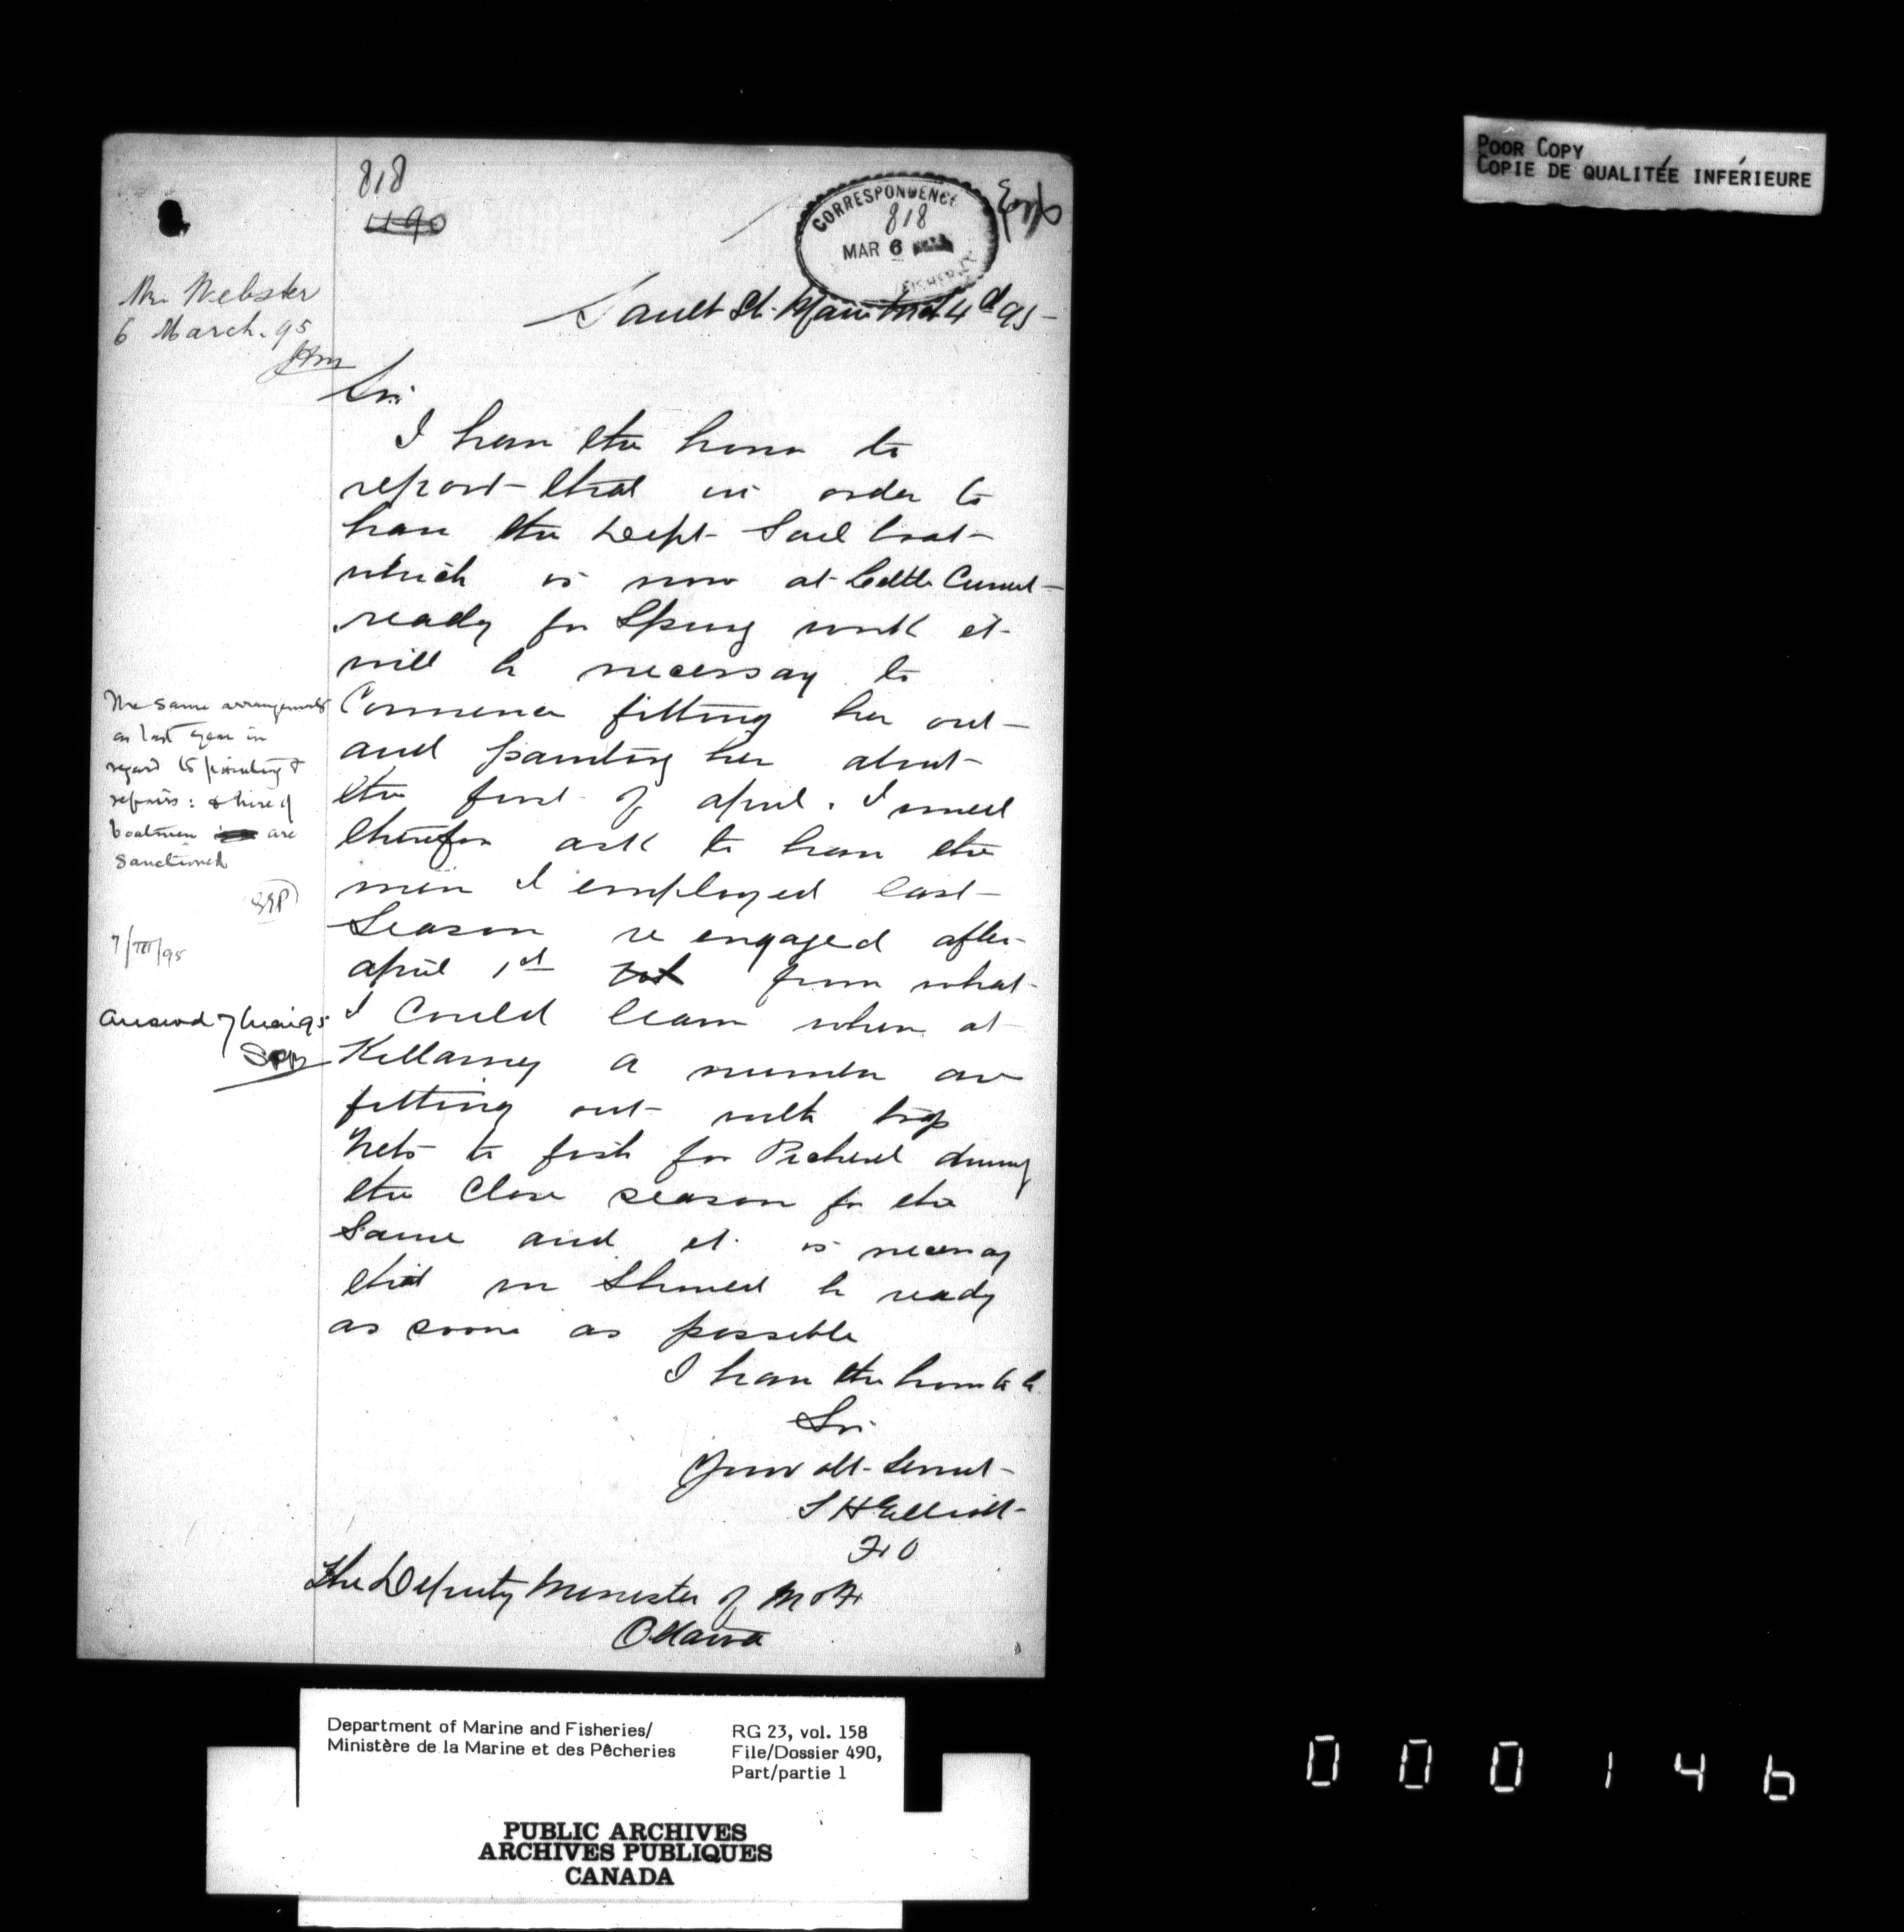 POOR COPY
COPIE DE QUALITÉE INFÉRIEURE
818
490
CORRESPONDENCE
818
MAR 6
FISHERIES
Mr. Webster
6 March. 95
Sault St. Marie Mch 4th 95
Sir
I have the honor to
report that in order to
have the Dept Sail boat
which is now at Little Current
ready for Spring work it
will be necessary to
Commence fitting her out
and painting her about
the first of april. I would
therefor ask to have the
men I employed last
Season re engaged after
april 1st from what
I Could learn when at
Killarney a number are
fitting out with trap
Nets to fish for Pickerel during
the Close season for the
Same and it is necessary
that we Should be ready
as soone as possible
I have the honor to be
Sir
Your obt. Servnt
S H Elliott
F O
The Deputy Minister of M & F
Ottawa
The same arrangements
as last year in
regard to painting &
repairs: & hire of
boatmen are
sanctioned
SEP
7/III/95
Answered 7 Mar 95
Department of Marine and Fisheries/
Ministère de la Marine et des Pêcheries
RG 23, vol. 158
File/Dossier 490,
Part/partie 1
PUBLIC ARCHIVES
ARCHIVES PUBLIQUES
CANADA
000146